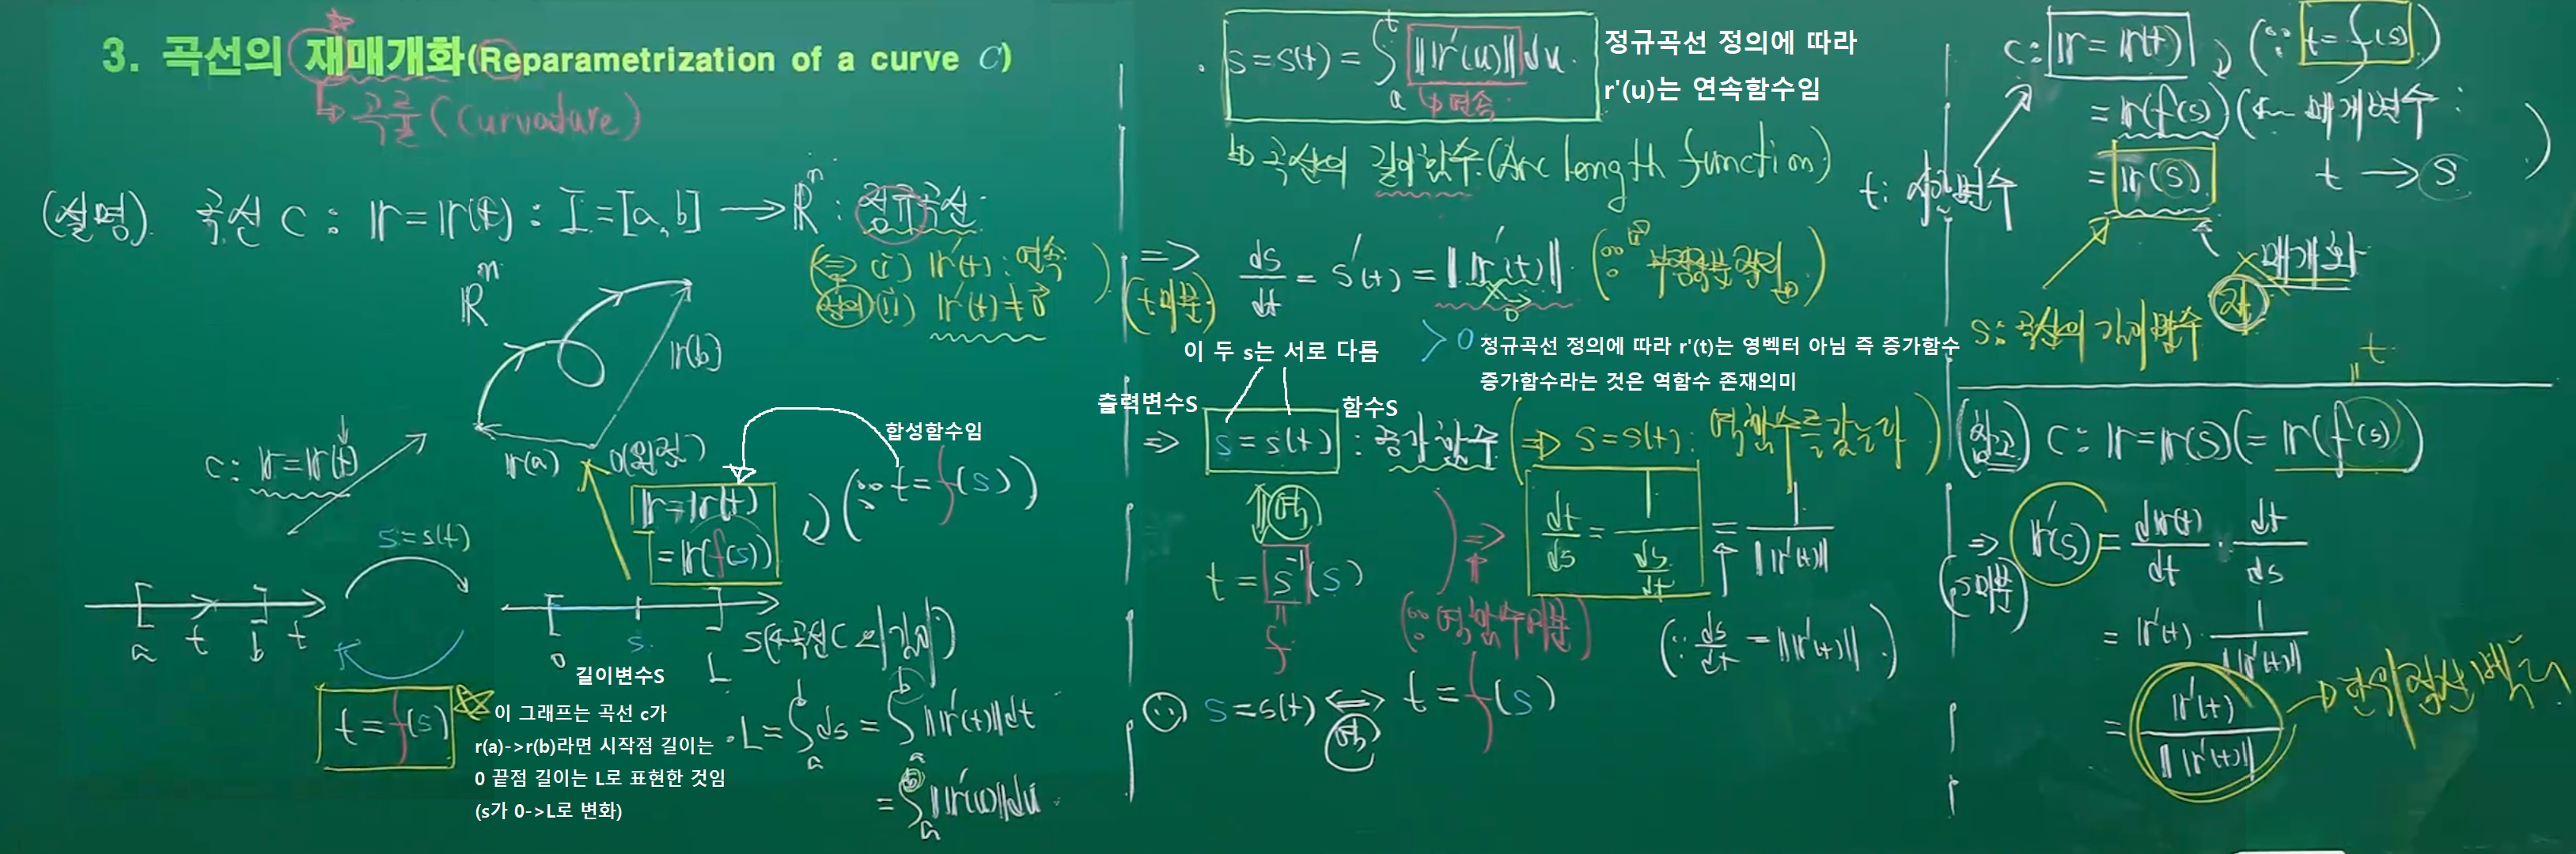 3. 곡선의 재매개화(Reparametrization of a curve C)
↳ 곡률 (Curvature)
(설명) 곡선 C : 𝕣=𝕣(t) : I=[a,b] → ℝⁿ : 정규곡선
(⇔ (i) 𝕣'(t) : 연속
정의 (ii) 𝕣'(t)≠0⃗ )
ℝⁿ
𝕣(b)
𝕣(a)
0(원점)
C : 𝕣=𝕣(t)
합성함수임
𝕣=𝕣(t)
=𝕣(f(s))
(∵ t=f(s))
s=s(t)
a t b t
0 s L
s(←곡선C의 길이)
길이변수S
t=f(s)
이 그래프는 곡선 c가
r(a)->r(b)라면 시작점 길이는
0 끝점 길이는 L로 표현한 것임
(s가 0->L로 변화)
· L=∫ₐᵇ ds = ∫ₐᵇ ‖𝕣'(t)‖dt
= ∫ₐᵇ ‖𝕣'(u)‖du.
· s=s(t) = ∫ₐᵗ ‖𝕣'(u)‖du.
↳ 연속
정규곡선 정의에 따라
r'(u)는 연속함수임
↳ 곡선의 길이함수(Arc length function)
⇒ ds/dt = s'(t) = ‖𝕣'(t)‖
(t미분)
> 0
정규곡선 정의에 따라 r'(t)는 영벡터 아님 즉 증가함수
증가함수라는 것은 역함수 존재의미
이 두 s는 서로 다름
출력변수S
함수S
⇒ s=s(t) : 증가함수 (⇒ s=s(t) : 역함수를 갖는다)
⇕ 역
t = s⁻¹(s)
= f
⇒ dt/ds = 1/(ds/dt) = 1/‖𝕣'(t)‖
(∵ 역함수미분)
(∵ ds/dt = ‖𝕣'(t)‖)
s=s(t) ⟷ t=f(s)
역
C : 𝕣=𝕣(t) (∵ t=f(s))
=𝕣(f(s)) (← 매개변수 :
=𝕣(s) t → s )
t :
재 매개화
s : 곡선의 길이변수
= t
(참고) C : 𝕣=𝕣(s)(=𝕣(f(s)))
⇒ 𝕣'(s) = d𝕣(t)/dt · dt/ds
(s미분)
= 𝕣'(t) · 1/‖𝕣'(t)‖
= 𝕣'(t)/‖𝕣'(t)‖ → 단위접선벡터